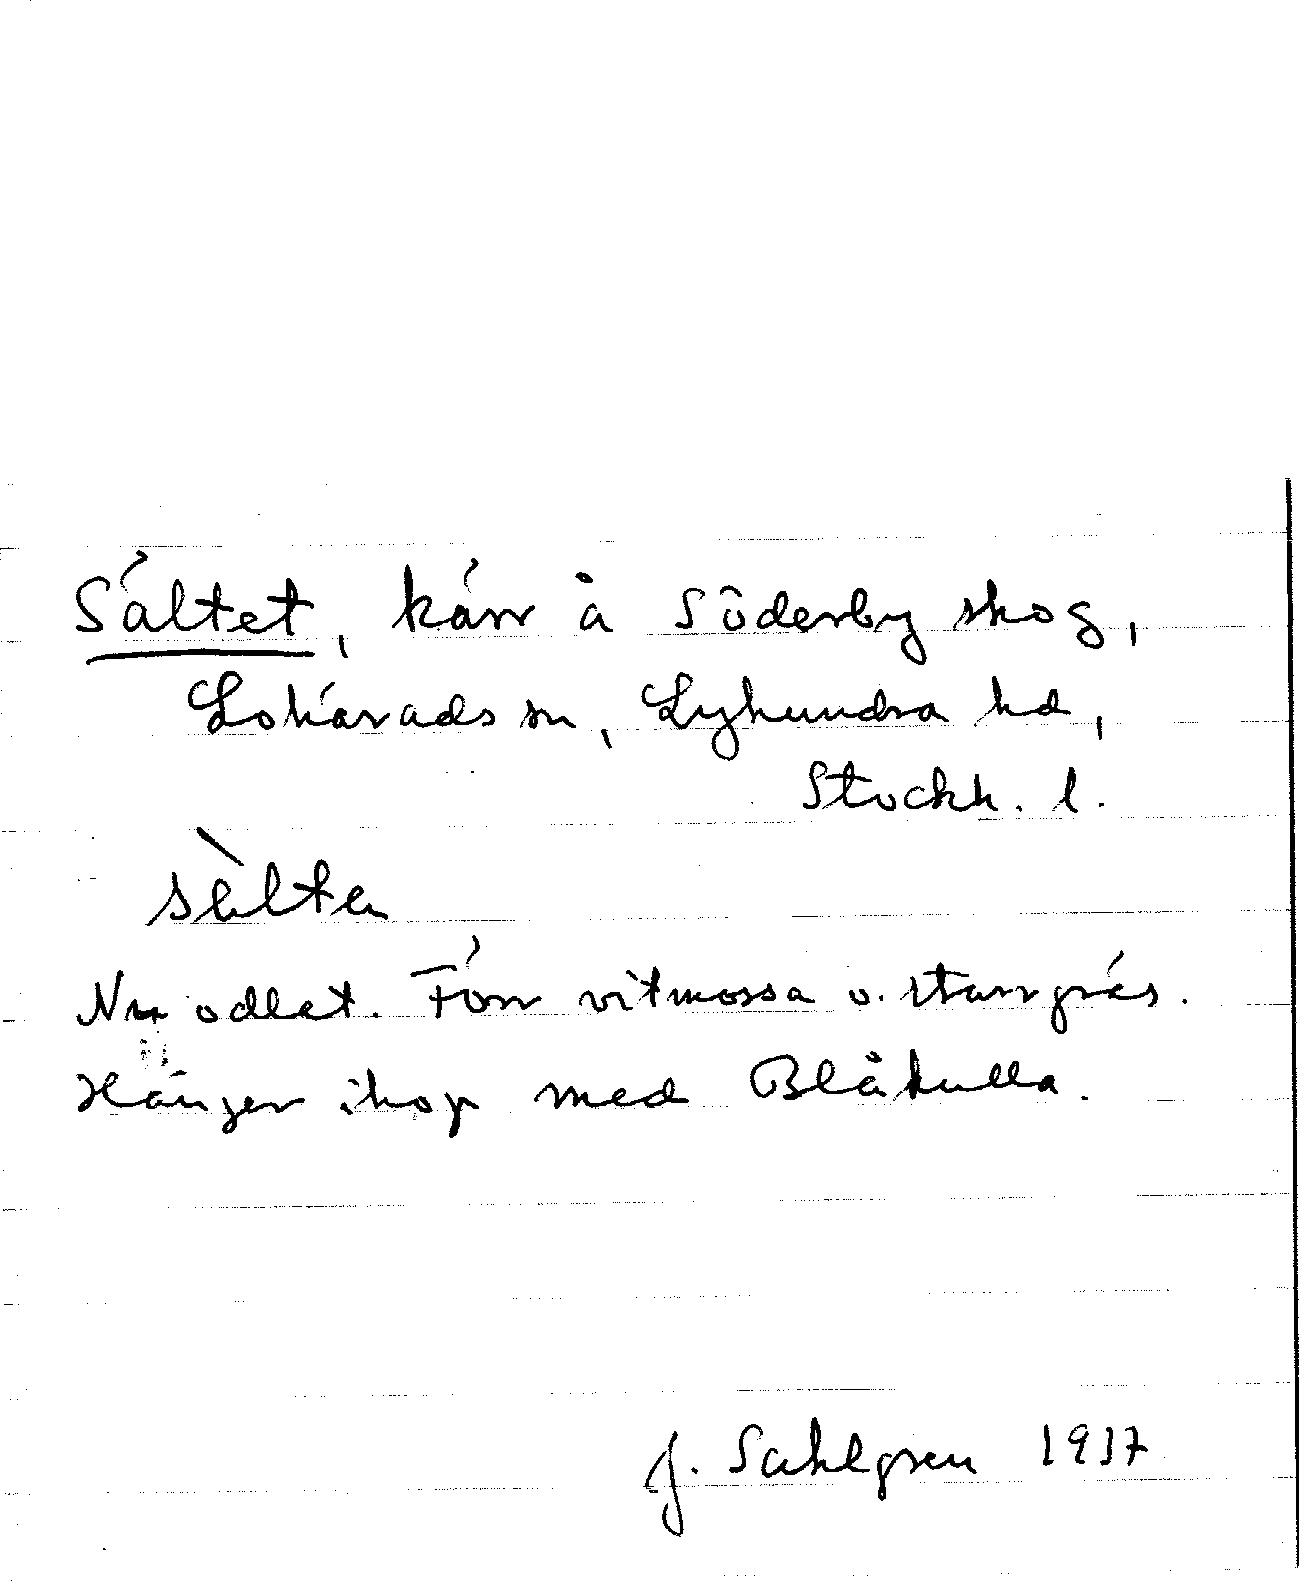 Sältet, kärr å Söderby skog,
Lohärads sn, Lyhundra hd,
Stockh. l.
sèlta
Nu odlat. Förr vitmossa o. starrgräs.
Hänger ihop med Blåkulla.
J. Sahlgren 1937